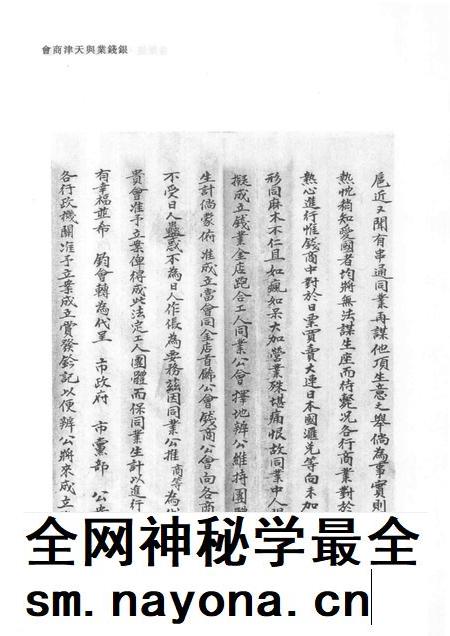 銀錢業與天津商會
扈近又聞有串通同業再謀他項生意之舉倘為事實則
熱忱稍知愛國者均將無法謀生座而待斃况各行商業對於
熱心進行惟錢商中對於日票買賣大連日本國滙兌等向未加
形同麻木不仁且如瘋如呆大加營業殊堪痛恨故同業中人
擬成立錢業金店跑合工人同業公會擇地辦公維持團體
生計倘蒙俯准成立當會同金店首飾公會錢商公會向各商
不受日人蠱惑不為日人作倀為要務茲因同業公推商等為
貴會准予立案俾得成此法定工人團體而保同業生計以進行
有幸福並希 鈞會轉為代呈 市政府 市黨部 公
各行政機關准予立案成立賞發鈐記以便辦公將來成立
全网神秘学最全
sm.nayona.cn